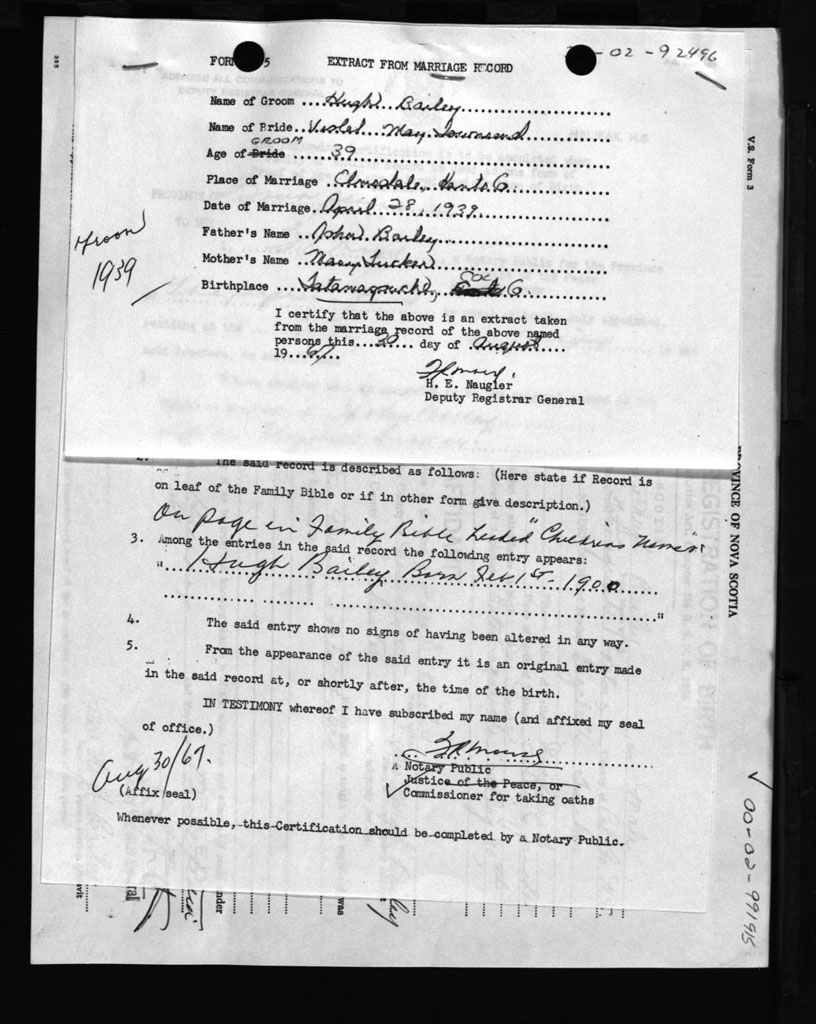 -02-92496
FOR 5 EXTRACT FROM MARRIAGE RECORD
Name of Groom ...Hugh Bailey
Name of Bride ..Violet May Townsend
GROOM
Age of Bride ......39
Place of Marriage .Elmsdale, Hants Co
Date of Marriage.April 28, 1939
Father's Name ..John Bailey
Mother's Name ..Mary Tucker
COL
Birthplace ....Tatamagouche, Co.
Groom
1939
I certify that the above is an extract taken
from the marriage record of the above named
persons this...30... day of August
19..67..
H. E. Naugler
Deputy Registrar General
V.S. Form 3
2. The said record is described as follows: (Here state if Record is
on leaf of the Family Bible or if in other form give description.)
On page in Family Bible headed "Childrens Names"
3. Among the entries in the said record the following entry appears:
"....Hugh Bailey Born Feb 1st - 1900
"
4. The said entry shows no signs of having been altered in any way.
5. From the appearance of the said entry it is an original entry made
in the said record at, or shortly after, the time of the birth.
IN TESTIMONY whereof I have subscribed my name (and affixed my seal
of office.)
Aug 30/67.
(Affix seal)
A Notary Public
Justice of the Peace, or
Commissioner for taking oaths
Whenever possible, this Certification should be completed by a Notary Public.
PROVINCE OF NOVA SCOTIA
REGISTRATION OF BIRTH
00-02-99195
nder
was